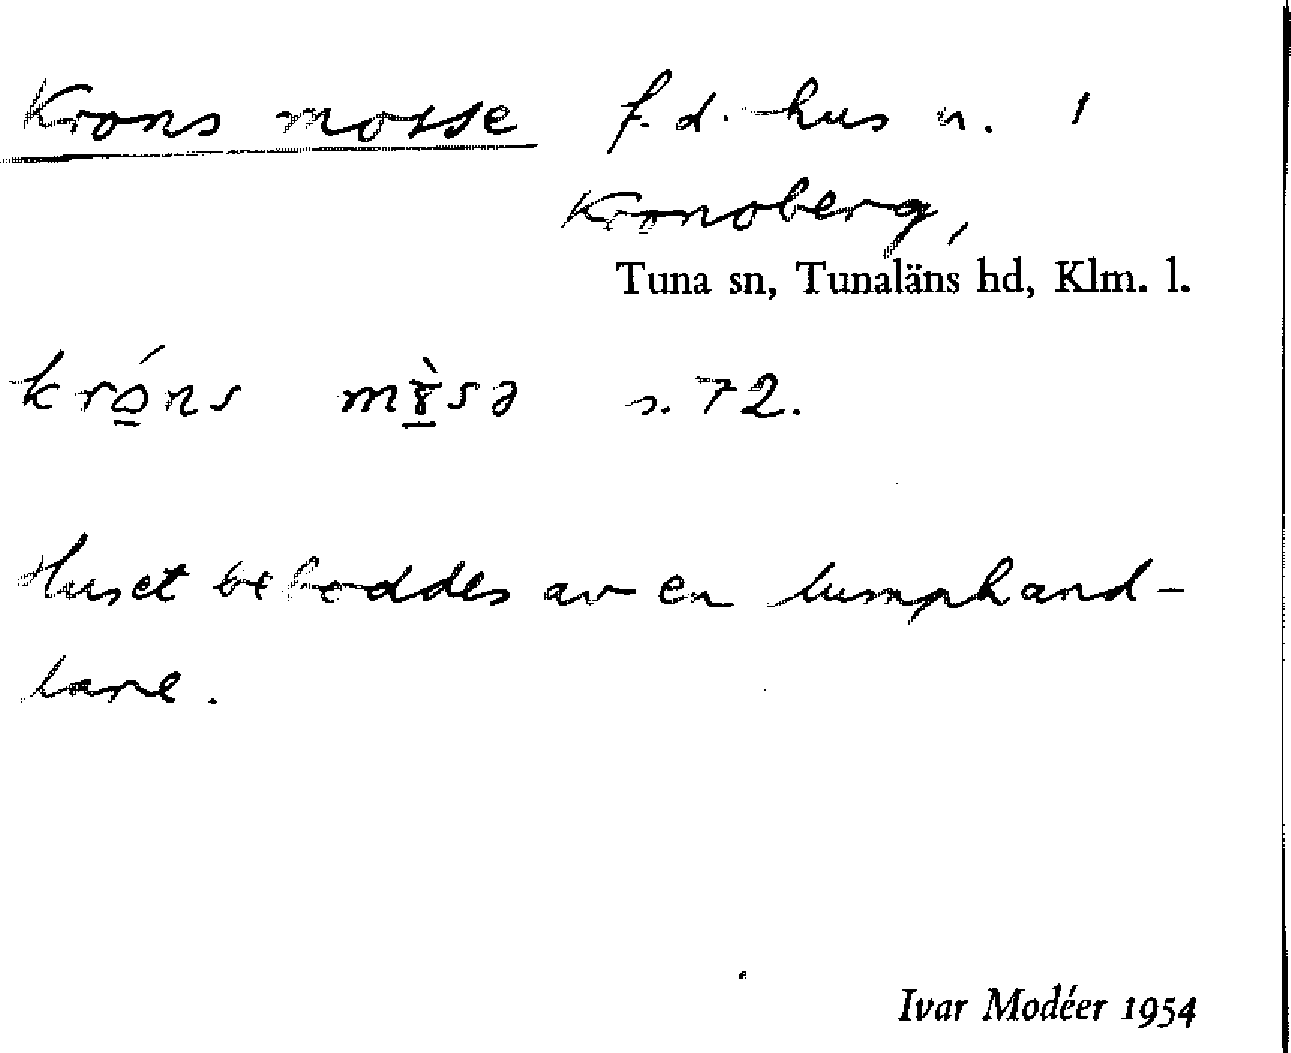 Krons mosse f.d. hus n. 1
Kronoberg,
Tuna sn, Tunaläns hd, Klm. l.
króns m s. 72.
Huset beboddes av en lumphand-
lare.
Ivar Modéer 1954